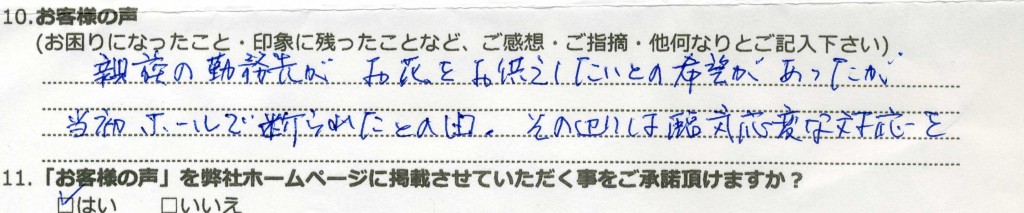 10.お客様の声
(お困りになったこと・印象に残ったことなど、ご感想・ご指摘・他何なりとご記入下さい)
親族の勤務先が お花をお供えしたいとの希望があったが
当初ホールで断られたとの由。その辺りは臨機応変な対応を
11.「お客様の声」を弊社ホームページに掲載させていただく事をご承諾頂けますか?
☑はい □いいえ